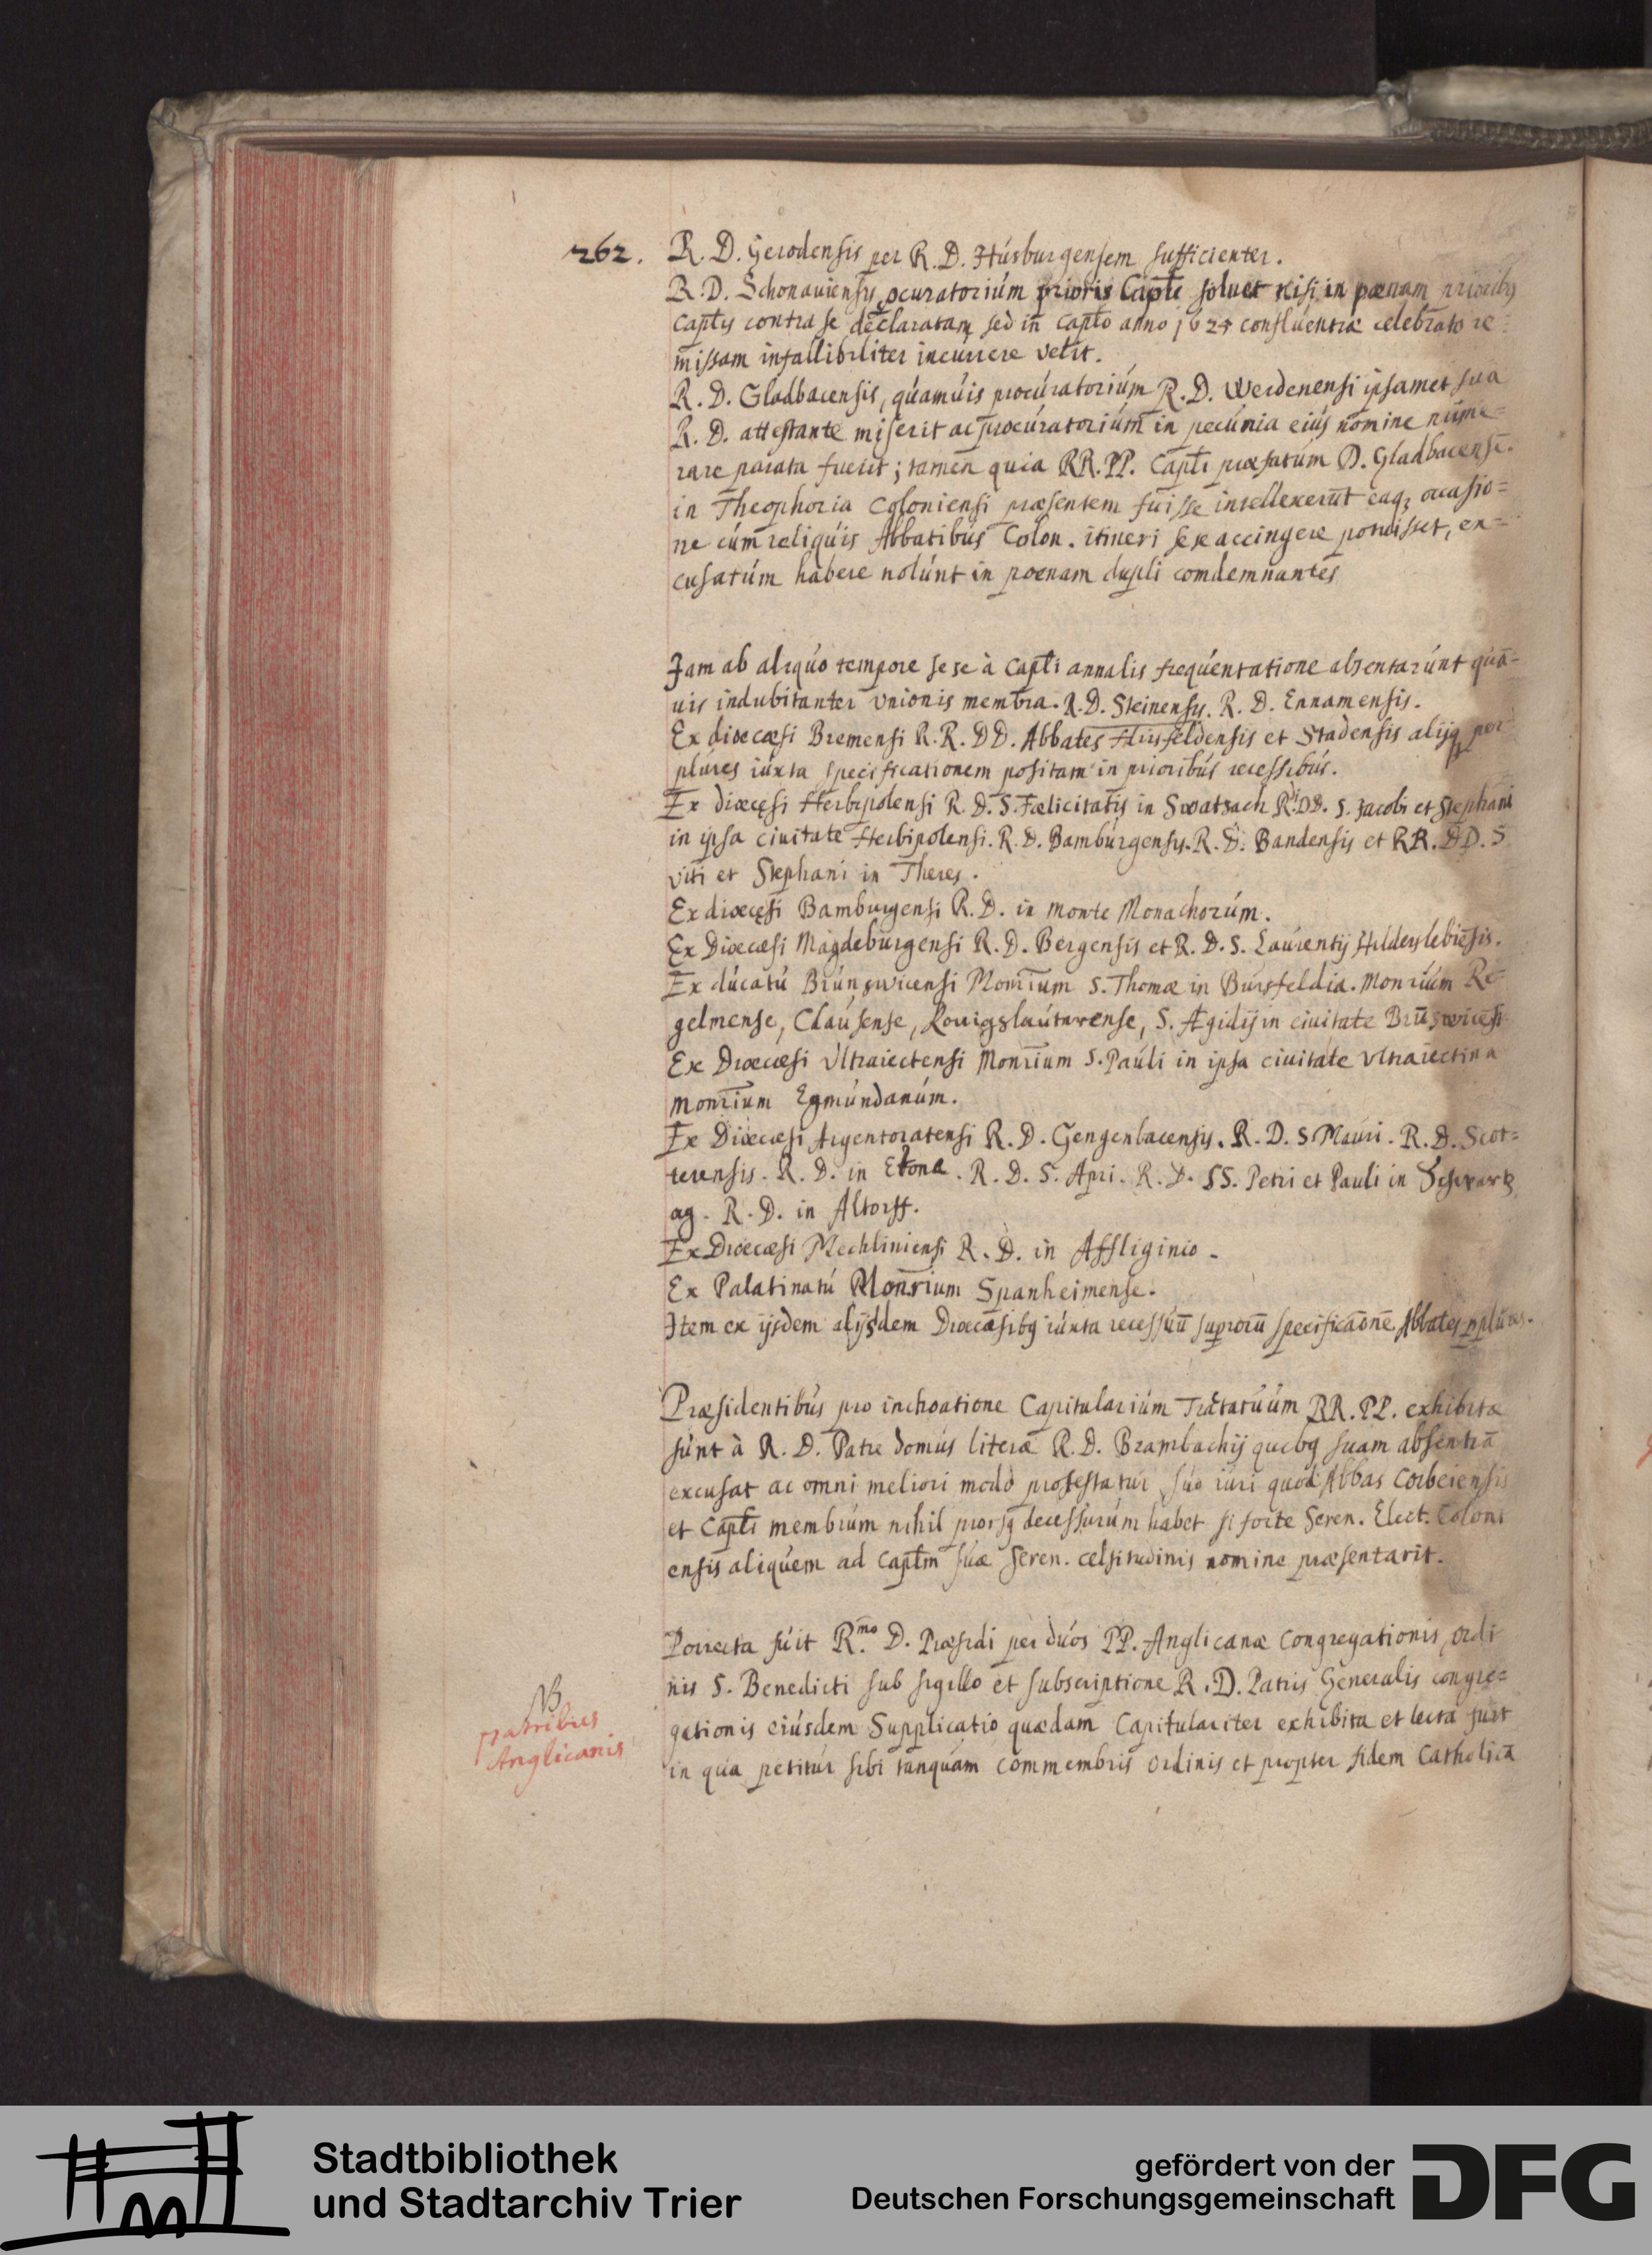 262. R. D. Gerodensis per R. D. Húsburgensem sufficienter.
R. D. Schonauiensis procuratoriúm prioris Capli soluet nisi in pœnam prioribus
caplis contra se declaratam, sed in caplo anno 1624 conflúentiæ celebrato re=
missam infallibiliter incurrere velit.
R. D. Gladbacensis, quámúis procúratoriúm R. D. Werdenensi ipsamet sua
R. D. attestante miserit ac procúratoriúm in pecúnia eiús nomine núme=
rare parata fuerit; tamen quia RR. PP. Capli præfatúm D. Gladbacense.
in Theophoria Coloniensi præsentem fúisse intellexerūt eaq; occasio=
ne cúm reliqúis Abbatibús Colon. itineri sese accingere potuisset, ex=
cusatúm habere nolúnt in pœnam dupli comdemnantes
Jam ab aliqúo tempore sese à Capli annalis freqúentatione absentarúnt quā=
uis indubitanter vnionis membra. R. D. Steinensis. R. D. Ennamensis.
Ex diœcæsi Bremensi R. R. DD. Abbates Húsfeldensis et Stadensis alijq; per
plúres iúxta specificationem positam in prioribús recessibús.
Ex diœcęsi Herbipolensi R. D. S. Fælicitatis in Swatzach RdiDD. S. Jacobi et Stephani
in ipsa ciuitate Herbipolensi. R. D. Bambúrgensis. R. D. Bandensis et RR. DD. S
viti et Stephani in Theres.
Ex diœcęsi Bamburgensi R. D. in Monte Monachorúm.
Ex Diœcæsi Magdebúrgensi R. D. Bergensis et R. D. S. Laúrentij Hildeslebiēsis.
Ex dúcatú Brúnswicensi Monrium S. Thomæ in Búrsfeldia. Monriúm Re=
gelmense, Claúsense, Konigslaúterense, S. Ægidij in ciuitate Brūswicēsi
Ex Diœcæsi Vltraiectensi Monrium S. Paúli in ipsa ciuitate vltraiectina
monrium Egmúndanúm.
Ex Diœcæsi Argentoratensi R. D. Gengenbacensis. R. D. S. Mauri. R. D. Scot=
terensis. R. D. in Etona. R. D. S. Apri. R. D. SS. Petri et Pauli in Schwartz
ag. R. D. in Altorff.
Ex Diœcæsi Mechliniensi R. D. in Affliginio.
Ex Palatinatú Monrium Spanheimense.
Item ex ijsdem alijsdem Diœcæsibq iúxta recessúū supriorū specificaōnē Abbates pplúres.
Præsidentibús pro inchoatione Capitulariúm Tractatúúm RR. PP. exhibitæ
súnt à R. D. Patre domús literæ R. D. Brambachij quebq suam absentiā
excusat ac omni meliori modo protestatúr súo iúri quod Abbas Corbeiensis
et Capli membrúm nihil prorsq decessúrúm habet si forte Seren. Elect. Coloni
ensis aliqúem ad Caplm súæ Seren. celsitudinis nomine præsentarit.
Porrecta fúit Rmo. D. Præsidi per dúos PP. Anglicanæ Congregationis ordi
nis S. Benedicti sub sigillo et subscriptione R. D. Patris Generalis congre=
gationis eiúsdem Supplicatio quædam Capitulariter exhibita et lecta fuit
in qúa petitúr sibi tanqúam commembris ordinis et propter fidem Catholicā
NB
patribus
Anglicanis
Stadtbibliothek
und Stadtarchiv Trier
gefördert von der
Deutschen Forschungsgemeinschaft
DFG